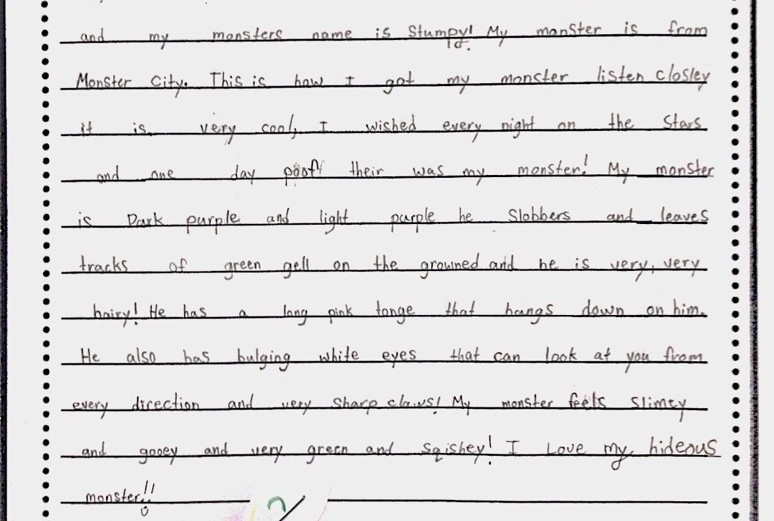 and my monsters name is Stumpy! My monster is from
Monster City. This is how I got my monster listen closley
it is very cool, I wished every night on the Stars
and one day poof! their was my monster! My monster
is Dark purple and light purple he Slobbers and leaves
tracks of green gell on the growned and he is very, very
hairy! He has a long pink tonge that hangs down on him.
He also has bulging white eyes that can look at you from
every direction and very sharp claws! My monster feels slimey
and gooey and very green and sqishey! I Love my hideous
monster!!